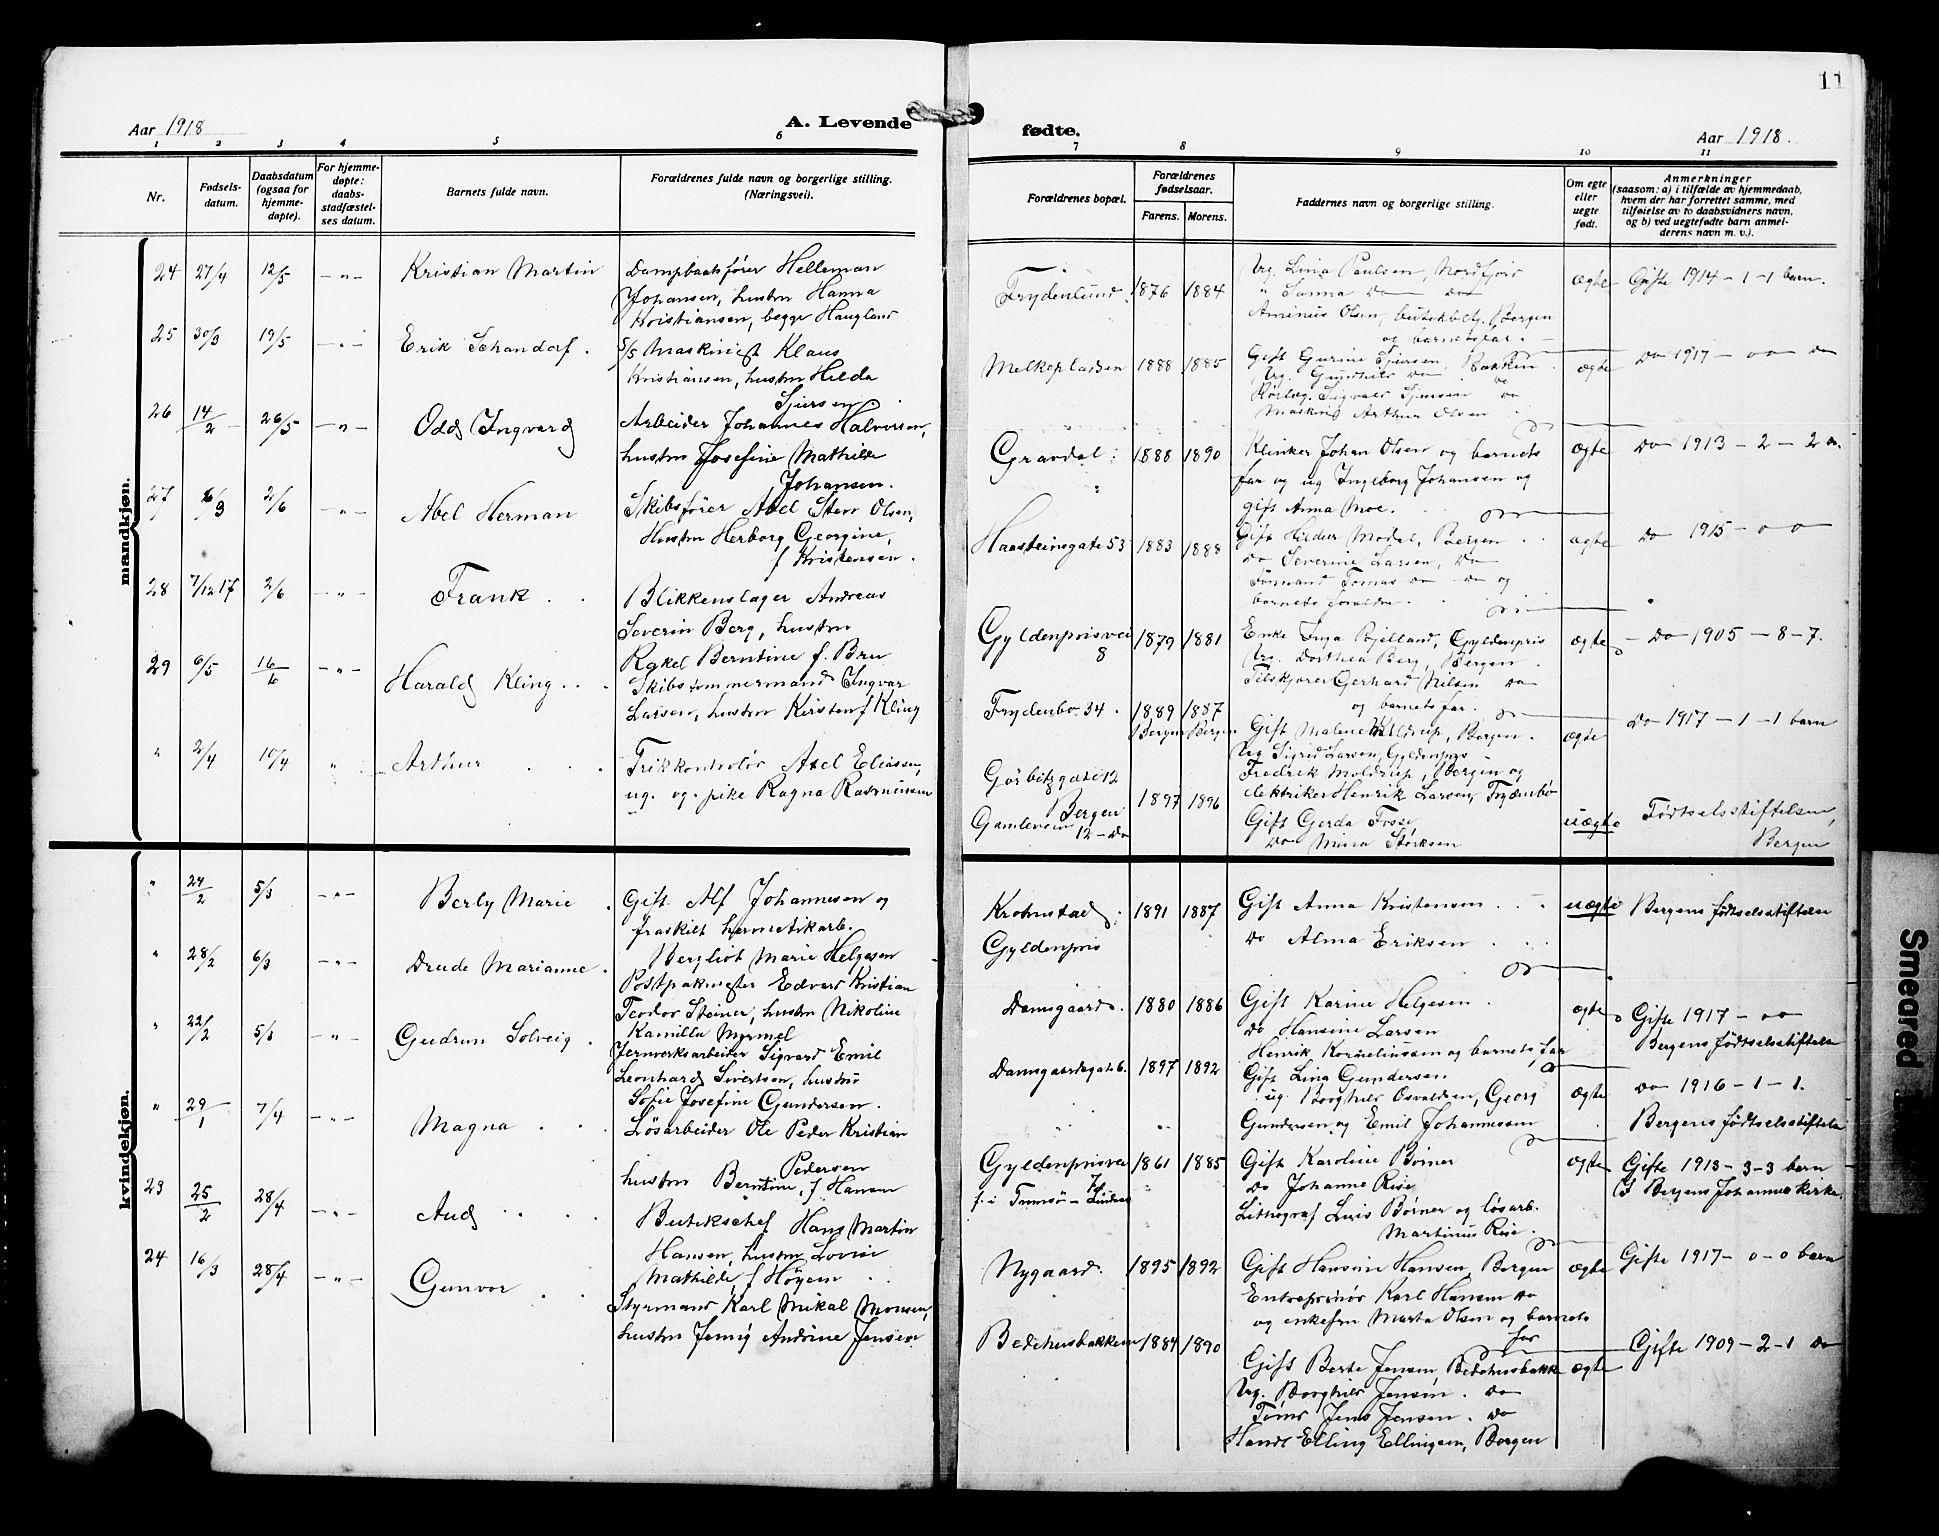 11
Aar 1918
A. Levende
1 2 3 4 5 6
Nr.
Fødsels-
datum.
Daabsdatum
(ogsaa for
hjemme-
døpte).
For hjemme-
døpte:
daabs-
stadfæstel-
ses datum.
Barnets fulde navn.
Forældrenes fulde navn og borgerlige stilling.
(Næringsvei).
mandkjøn.
24 27/4 12/5 — " — Kristian Martin Dampbaatsfører Helleman
Johansen, hustru Hanna
Kristiansen, begge Haugland
25 30/3 19/5 — " — Erik Schandorf. S/S Maskinist Klaus
Kristiansen, hustru Hilda
Sjursen.
26 14/2 26/5 — " — Odd Ingvard Arbeider Johannes Halvorsen,
hustru Josefine Mathilde
Johansen.
27 6/3 2/6 — " — Abel Herman Skibsfører Abel Steen Olsen,
Hustru Herborg Georgine,
f Kristensen.
28 7/12 17 2/6 — " — Frank . . Blikkenslager Andreas
Severin Berg, hustru
Rakel Berntine f. Bru
29 6/5 16/6 — " — Harald Kling . . . Skibstømmermand Ingvar
Larsen, hustru Kirsten f Kling
" 2/4 10/4 " Arthur . . . Trikkontrolør Axel Eliassen,
ug. og. pike Ragna Rasmussen
kvindekjøn.
" 24/2 5/3 — " — Berly Marie . Gift Alf Johannesen og
fraskilt hermetikarb.
Bergliot Marie Helgesen
" 28/2 6/3 — " — Drude Marianne. Postpakmester Edvard Kristian
Teodor Steiner, hustru Nikoline
Kamilla Myrmel
" 22/2 5/3 — " — Gudrun Solveig . Jernverksarbeider Sigvard Emil
Leonhard Sivertsen, hustru
Sofie Josefine Gundersen.
" 29/1 7/4 — " — Magna . . . Løsarbeider Ole Peder Kristian
Pedersen
hustru Berntine, f Hansen
23 25/2 28/4 — " — Aud . . . Butikschef Hans Martin
Hansen, hustru Lovise
Mathilde f Høyem . .
24 16/3 28/4 — " — Gunvor . . Styrmand Karl Mikal Monsen,
hustru Jenny Andrine Jensen
fødte.
Aar 1918.
7 8 9 10 11
Forældrenes bopæl.
Forældrenes
fødselsaar.
Farens. Morens.
Faddernes navn og borgerlige stilling.
Om egte
eller
uegte
født.
Anmerkninger
(saasom: a) i tilfælde av hjemmedaab,
hvem der har forrettet samme, med
tilføielse av to daabsvidners navn,
og b) ved uegtefødte barn anmel-
derens navn m. v.).
Frydenlund. 1876 1884 Ug. Lina Paulsen, Nordfjord ægte Gifte 1914 – 1 – 1 barn.
" Sanna do — do
Aminius Olsen, butikbetj. Bergen
og barnets far. –
Melkeplassen 1888 1885 Gift Gurine Sjursen, Bakken ægte Do 1917 – o o do
Ug. Gunhild do do
Rørlæg. Sigvald Sjursen do
Maskinis Arthur Olsen
Gravdal. 1888 1890 Klinker Johan Olsen og barnets ægte Do 1913 – 2 – 2 do.
far og ug Ingeborg Johansen og
gift Anna Moe.
Haasteinsgate 53 1883 1888 Gift Hildur Modal, Bergen . . ægte Do 1915 – o o
do Severine Larsen, do
Formand Tomas do – do og
barnets foreldre.
Gyldenprisvei 8 1879 1881 Enke Inga Bjelland, Gyldenpris ægte – Do 1905 – 8 – 7.
Ug. Dorthea Berg, Bergen
Filskjærer Gerhard Nilsen do
og barnets far.
Frydenbo 34. 1889 1887 Gift Malene Moldrup, Bergen. ægte Do 1917 – 1 – 1 barn
Bergen Bergen
Ug Sigrid Larsen, Gyldenpris
Fredrik Moldrup, Bergen og
elektriker Henrik Larsen, Frydenbø
Görbitzgate 12
Bergen 1897 1896 Gift Gerda Fosse uægte Fødselsstiftelsen,
Gamleveien 12 – do do Mina Størksen Bergen
Krohnstad. 1891 1887 Gift Anna Kristensen . . . uægte Bergens fødselsstiftelse
Gyldenpris do Alma Eriksen . . .
Damsgaard. 1880 1886 Gift Karine Helgesen . ægte Gifte 1917 – o o
do Hansine Larsen Bergens fødselsstiftelse
Henrik Korneliussen og barnets far
Damsgaardsgate 6. 1897 1892 Gift Lina Gundersen ægte do 1916 – 1 – 1.
ug. Borghild Osvaldsen, Georg Bergens fødselsstiftelse
Gundersen og Emil Johannessen
Gyldenprisvei 1861 1885 Gift Karoline Børner ægte Gifte 1913 – 3 – 3 barn
f. i Tromsø – do Johanne Rise I Bergens Johannes kirke.
Litograf Luis Børner og løsarb.
Martinus Rise.
Nygaard. 1895 1892 Gift Hansine Hansen, Bergen ægte Gifte 1917 – o – o barn
Entreprenør Karl Hansen do
og enkefru Marta Olsen og barnets
far
Bedehusbakken 1884 1890 Gift Berte Jensen, Bedehusbakk ægte Gifte 1909 – 2 – 1 do
Ug. Borghild Jensen. do
Tømr Jens Jensen. do
Handl Elling Ellingsen, Bergen
Smeared